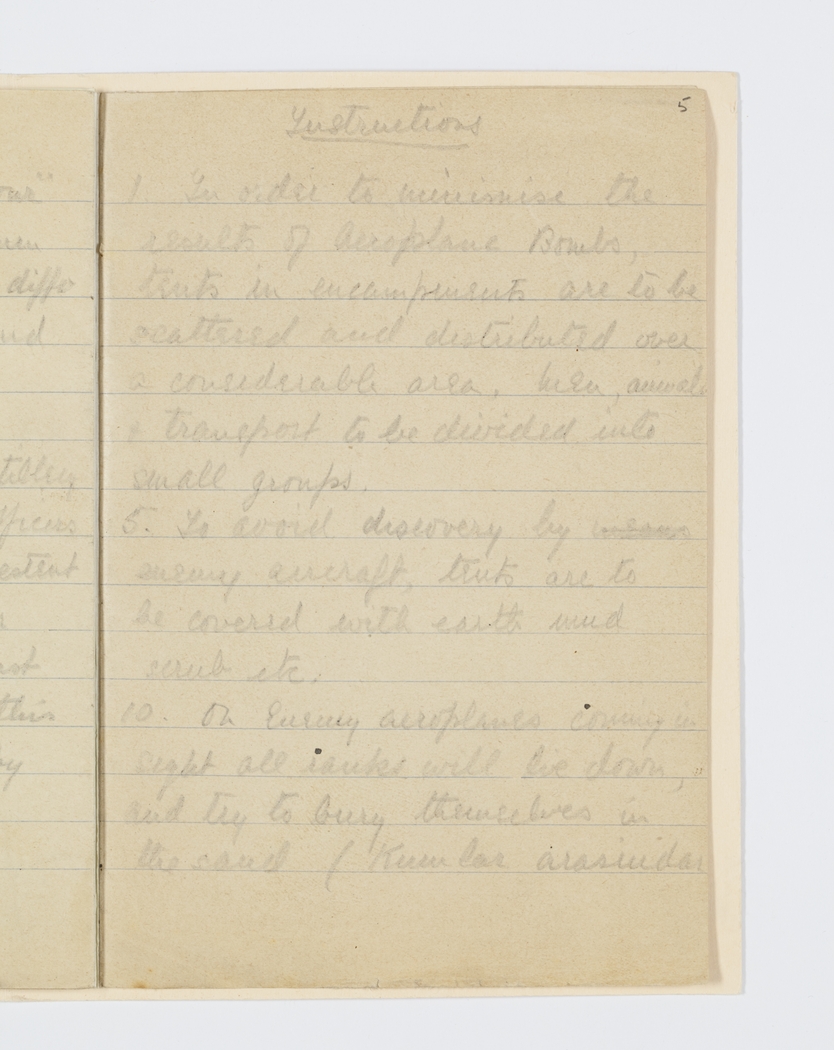 5
Instructions
1. In order to minimise the
results of Aeroplane Bombs,
tents in encampments are to be
scattered and distributed over
a considerable area. Men, animals
& transport to be divided into
small groups.
5. To avoid discovery by means
enemy aircraft, tents are to
be covered with earth mud
scrub etc.
10. On Enemy aeroplanes coming in
sight all ranks will lie down,
and try to bury themselves in
the sand (Kumlar arasindar
diffe
nd
this